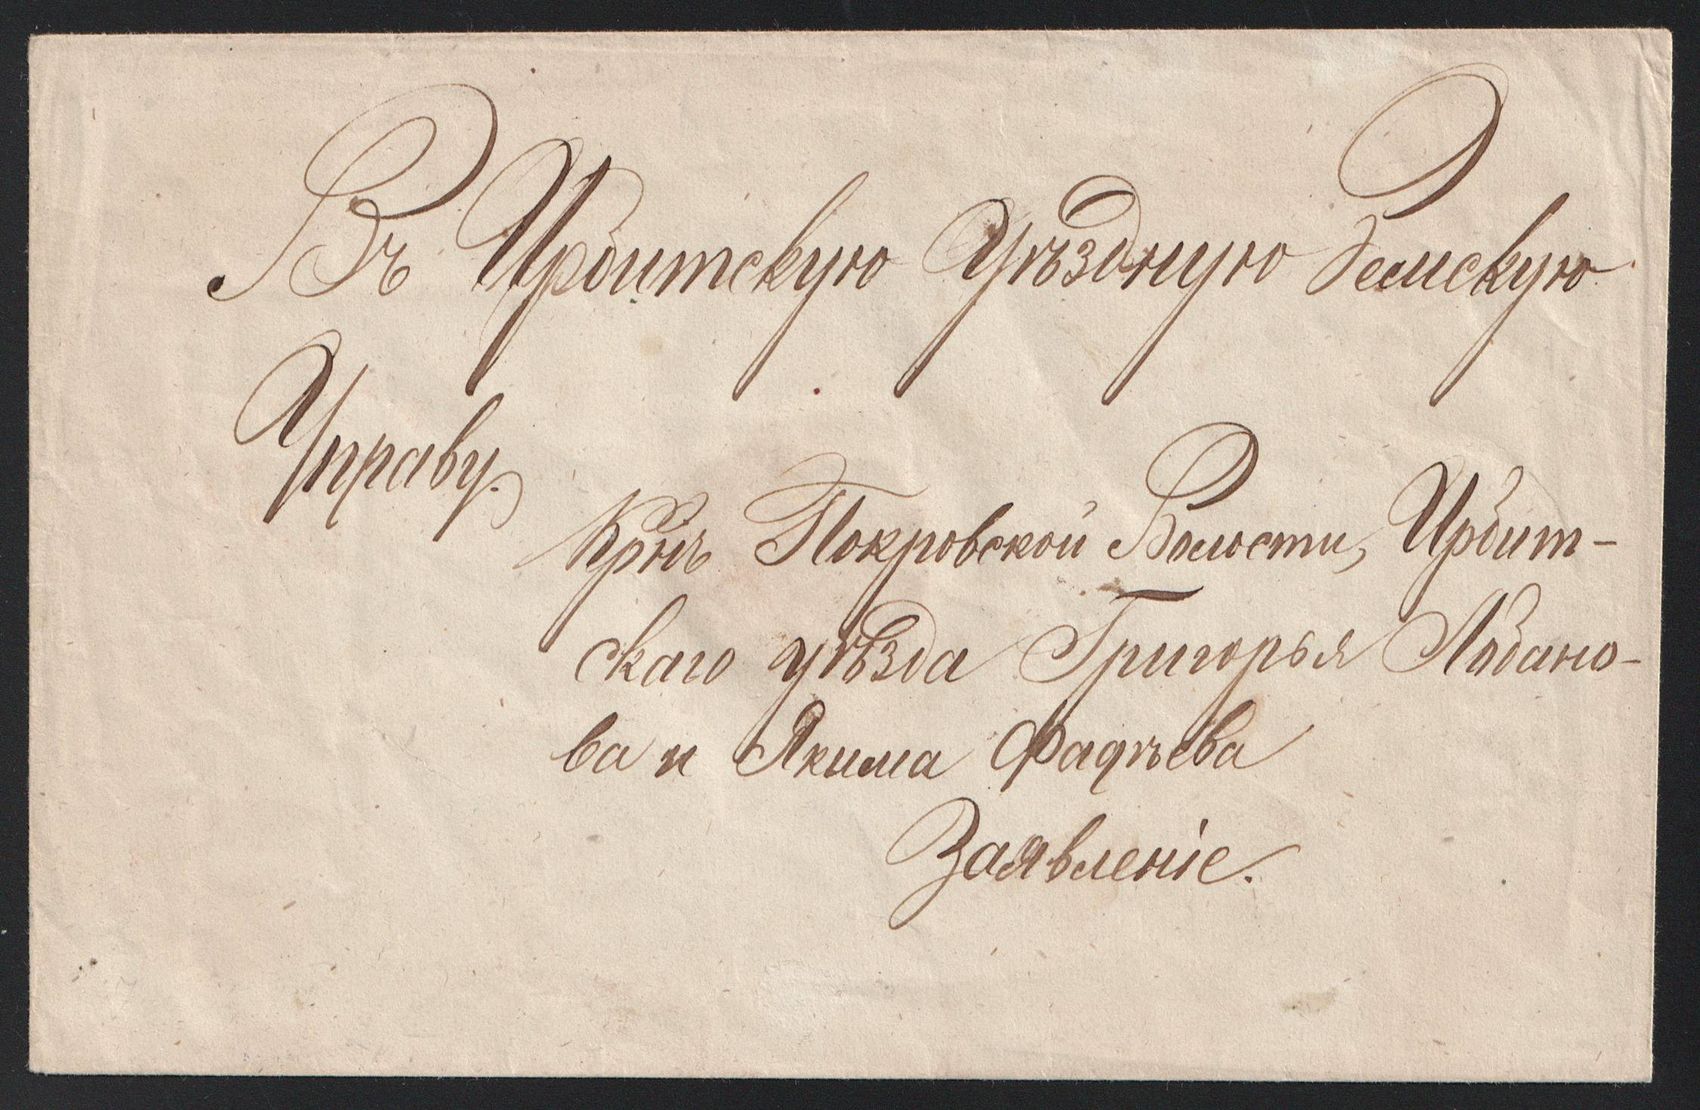 Въ Ирбитскую Уѣздную Земскую
Управу.
Крнъ Покровской Волости, Ирбит-
скаго уѣзда Григорья Лобано-
ва и Якима Фадѣева
Заявленіе.